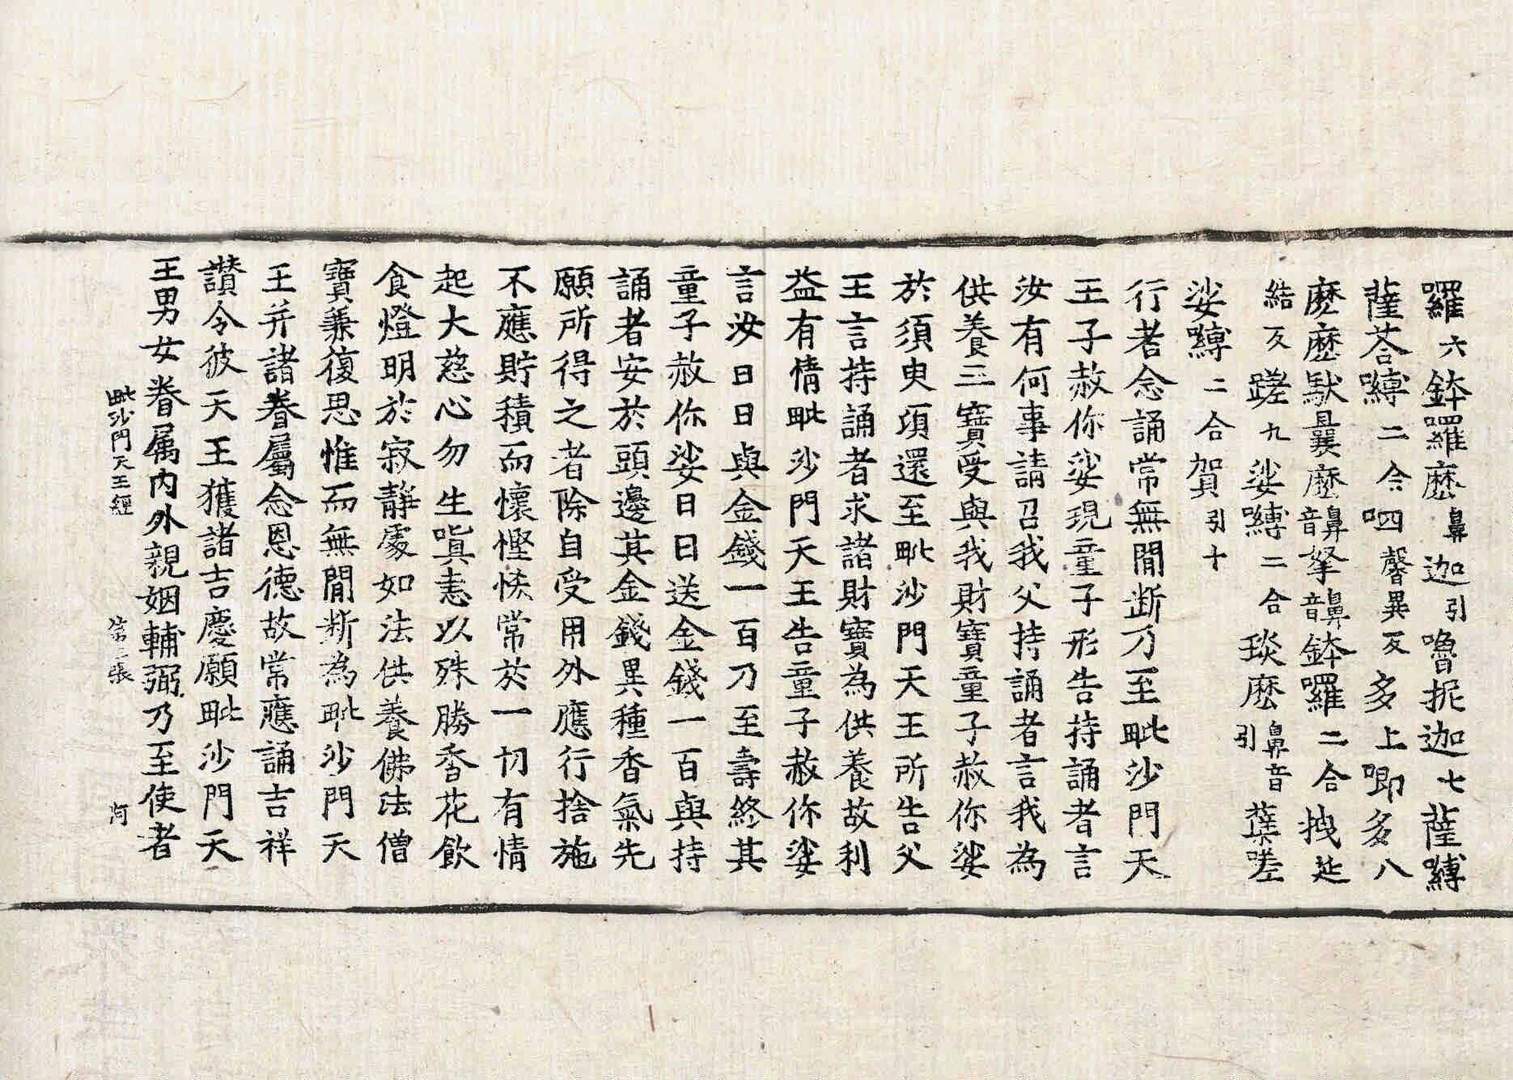 囉六鉢羅麽鼻迦引嚕抳迦七薩嚩
薩荅嚩二合呬四馨異反多上唧多八
麽麽馱曩麽鼻音拏鼻音鉢羅二合拽延
結反蹉九娑嚩二合琰麽鼻音引蘖嗟
娑嚩二合賀引十
行者念誦常無閒断乃至毗沙門天
王子赦你娑現童子形告持誦者言
汝有何事請召我父持誦者言我為
供養三寶受與我財寶童子赦你娑
於須臾頃還至毗沙門天王所告父
王言持誦者求諸財寶為供養故利
益有情毗沙門天王告童子赦你娑
言汝日日與金錢一百乃至壽終其
童子赦你娑日日送金錢一百與持
誦者安於頭邊其金錢異種香氣先
願所得之者除自受用外應行捨施
不應貯積而懷慳悋常於一切有情
起大慈心勿生嗔恚以殊勝香花飲
食燈明於寂静處如法供養佛法僧
寶兼復思惟而無閒断為毗沙門天
王并諸眷屬念恩德故常應誦吉祥
讃令彼天王獲諸吉慶願毗沙門天
王男女眷属內外親姻輔弼乃至使者
毗沙門天王經 第二張 阿